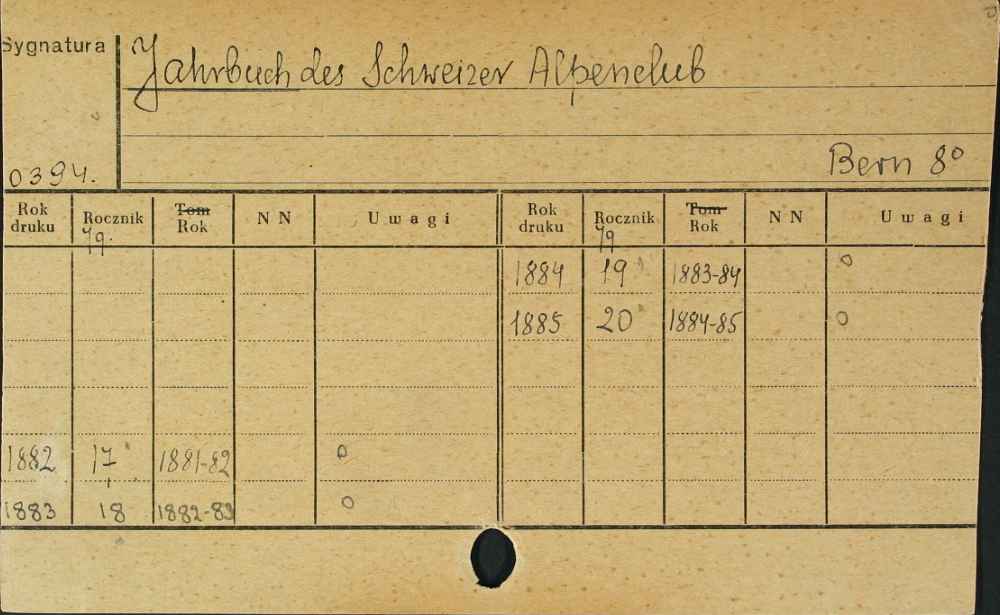 Sygnatura
Jahrbuch des Schweizer Alpenclub
0394.
Bern 8°
Rok druku Rocznik Jg. Tom Rok N N Uwagi Rok druku Rocznik Jg Tom Rok N N Uwagi
1884 19 1883-84 o
1885 20 1884-85 o
1882 17 1881-82 o
1883 18 1882-83 o